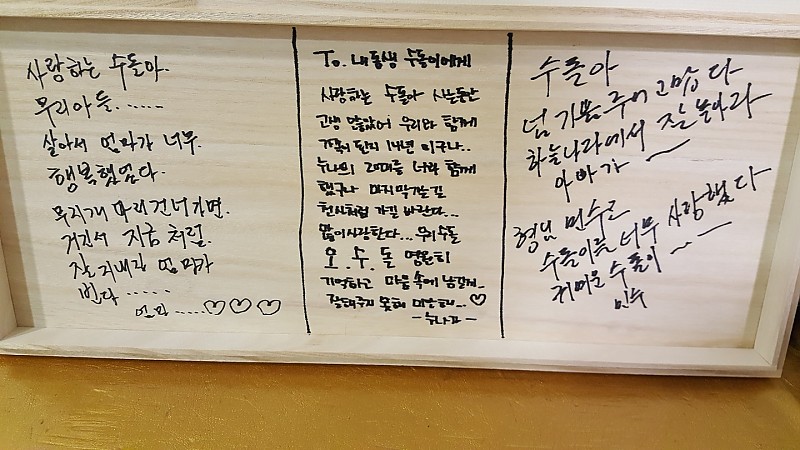 사랑하는 수돌아.
우리아들......
살아서 엄마가 너무.
행복했었다.
무지개 다리 건너가면.
거긴서 지금 처럼.
잘 지내길 엄마가
빈다......
엄마.....♡♡♡
To. 내동생 수돌이에게
사랑하는 수돌아 사는동안
고생 많았어 우리와 함께
가족이 된지 14년 이구나..
누나의 20대를 너와 함께
했구나 마지막 가는길
천사처럼 가길 바란다...
많이사랑한다... 우리 수돌
오.수.돌 영원히
기억하고 마음속에 남길게..
잘해주지 못해 미안해...♡
-누나가-
수돌아
넘 기쁨 주어 고맙다
하늘나라에서 잘 놀아라
아빠가 ~
형님 민수고
수돌이를 너무 사랑했다
귀여운 수돌이 ~ ~
민수